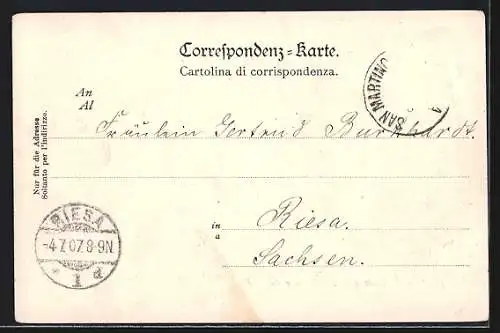 Correspondenz-Karte.
Cartolina di corrispondenza.
SAN MARTINO
An
Al
Fräulein Gertrud Burkhardt.
Nur für die Adresse
Soltanto per l'indirizzo.
in
a
Riesa.
Sachsen.
RIESA
-4.7.07.8-9N
* 1 d